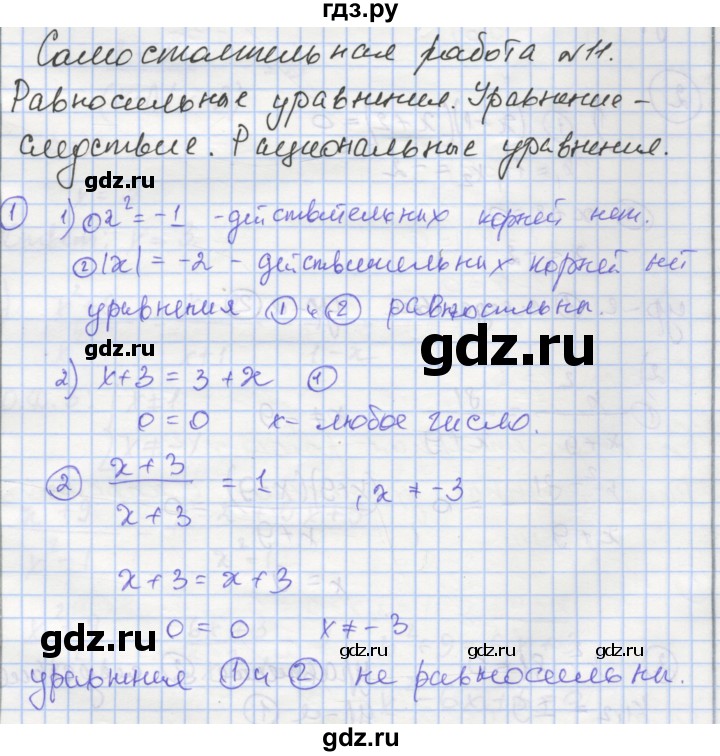 гдз.ру
Самостоятельная работа №11.
Равносильные уравнения. Уравнение-
следствие. Рациональные уравнения.
gdz.ru
① 1) ① x² = -1 - действительных корней нет.
② |x| = -2 - действительных корней нет
уравнения ① и ② равносильны.
gdz.ru
gdz.ru
2) x + 3 = 3 + x ①
0 = 0 x - любое число.
② (x + 3)/(x + 3) = 1 , x ≠ -3
x + 3 = x + 3
0 = 0 x ≠ -3
gdz.ru gdz.ru gdz.ru
уравнения ① и ② не равносильны.
gdz.ru